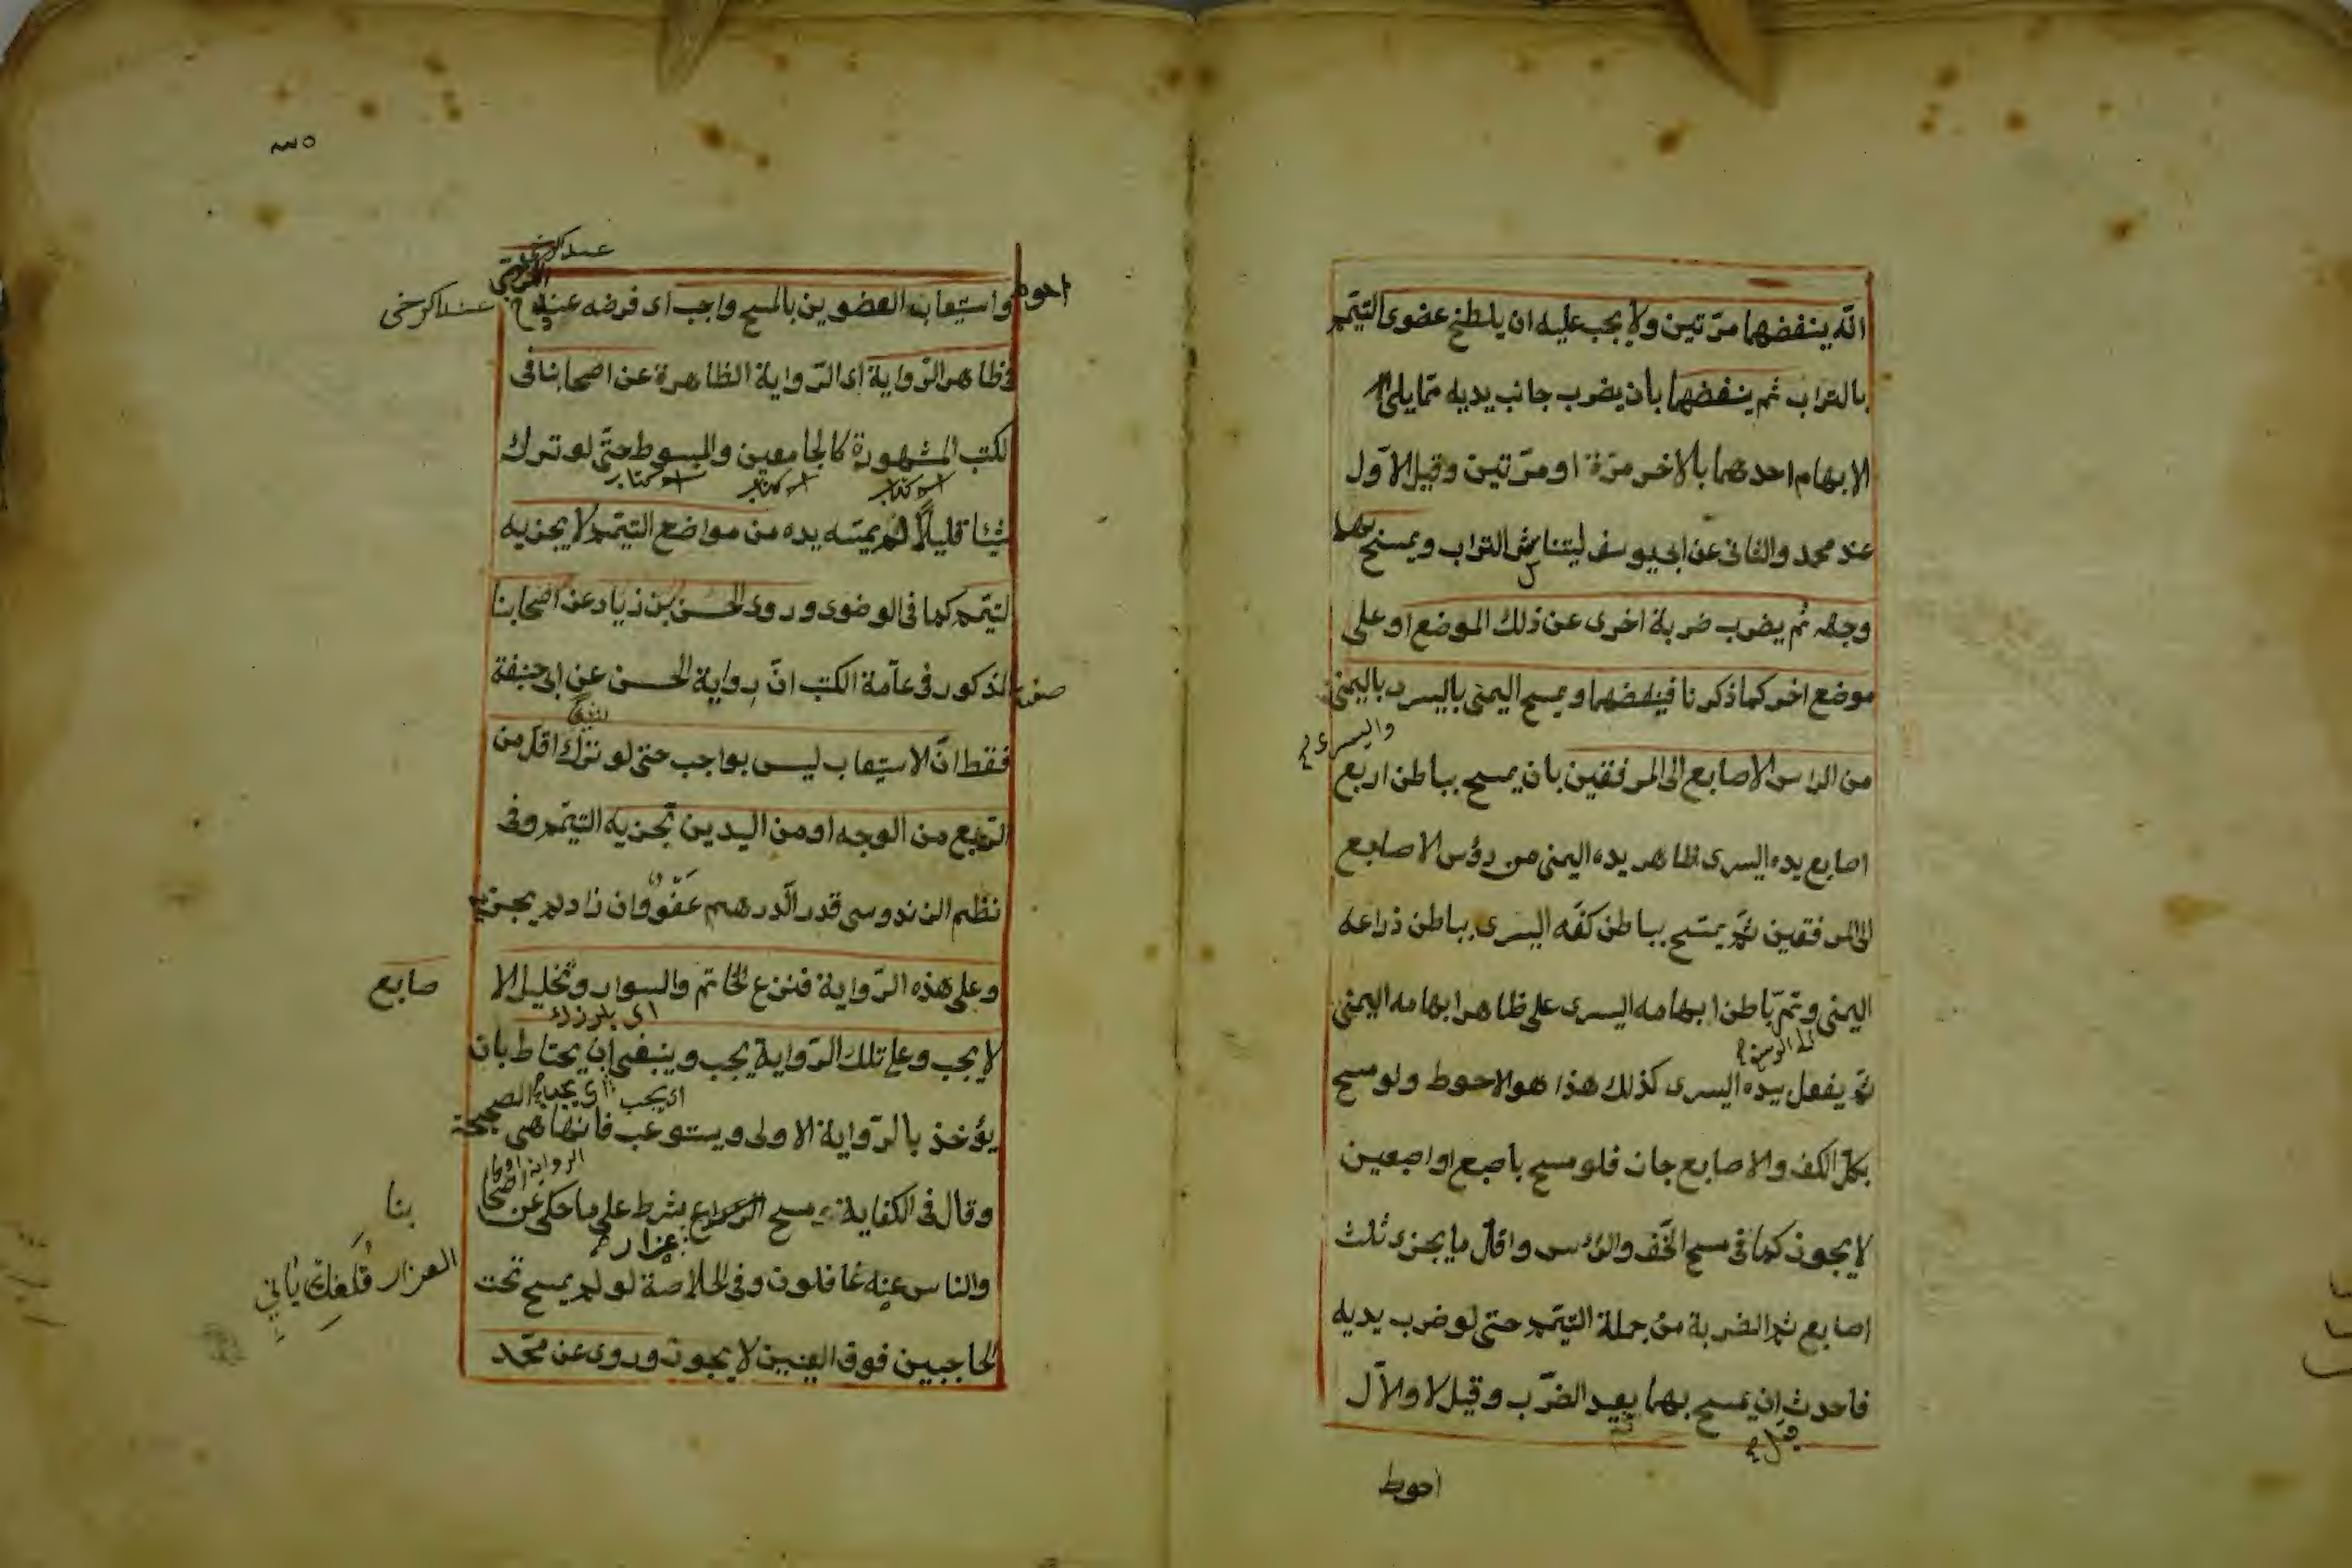 انّه ينفضهما مرّتين ولا يجب عليه ان يلطخ عضوى التيّمم
بالتراب ثم ينفضهما بأن يضرب جانب يديه ممّا يلى
الابهام احدهما بالاخر مرّة او مرّتين وقيل الاوّل
عند محمد والثانى عن ابى يوسف ليتناثر التراب ويمسح بهما
وجهه ثم يضرب ضربة اخرى عن ذلك الموضع او على
موضع اخر كما ذكرنا فينفضهما ويمسح اليمنى باليسرى باليمنى
واليسرى
من الراس الاصابع الى المرفقين بان يمسح بباطن اربع
اصابع يده اليسرى ظاهر يده اليمنى من رؤس الاصابع
الى المرفقين ثمّ يمسح بباطن كفّه اليسرى بباطن ذراعه
اليمنى وتمّ باطن ابهامه اليسرى على ظاهر ابهامه اليمنى
ثمّ يفعل بيده اليسرى كذلك هذا هو الاحوط ولو مسح
بكلّ الكف والاصابع جاز فلو مسح باصبع او اصبعين
لا يجوز كما فى مسح الخفّ والرؤس واقلّ ما يجزى ثلث
اصابع ثم الضربة من جملة التيّمم حتى لو ضرب يديه
فاحدث ان يمسح بهما بعد الضرب وقيل لا والاوّل
احوط
٣٥
عند الكرخى
احوط
واستيعاب العضوين بالمسح واجب اى فرضه عند
عند الكرخى
فى ظاهر الرّواية اى الرّواية الظاهرة عن اصحابنا فى
لكتب المشهورة كالجامعين والمبسوط حتّى لو ترك
اسم كتاب اسم كتاب اسم كتاب
شيئا قليلاً لم يمسّه يده من مواضع التيّمم لا يجزيه
لتيّمم كما فى الوضوى وروى الحسن بن زياد عن اصحابنا
المذكور فى عامّة الكتب انّ رواية الحسن عن ابى حنيفة
فقط انّ الاستيعاب ليس بواجب حتى لو ترك اقلّ من
الرّبع من الوجه او من اليدين تجزيه التيّمم وفى
نظم الزندوسى قدر الدّرهم عَفْوٌ وان زاد لم يجز
وعلى هذه الرّواية فنزع الخاتم والسوار وتخليل الا
صابع
لا يجب وعلى تلك الرّواية يجب وينبغى ان يحتاط بان
اى يجب
يؤخذ بالرّواية الاولى ويستوعب فانّها هى الصحيحة
وقال فى الكفاية ومسح العزار بشرط على ما حكى عن اصحا
بنا
والناس عنه غافلون وفى الخلاصة لو لم يمسح تحت
العزار
الحاجبين فوق العينين لا يجوز وروى عن محّمد